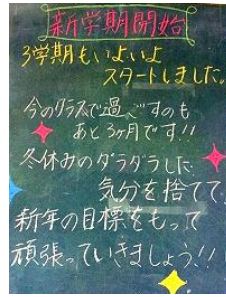 新学期開始
3学期もいよいよ
スタートしました。
今のクラスで過ごすのも
あと3ヶ月です!!
冬休みのダラダラした
気分を捨てて
新年の目標をもって
頑張っていきましょう!!